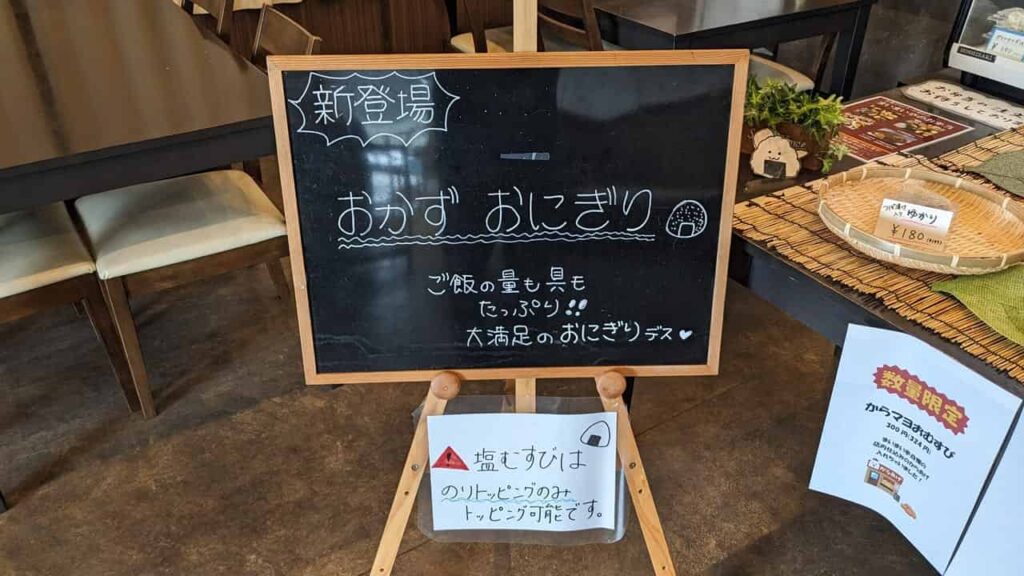 新登場
おかず おにぎり
ご飯の量も具も
たっぷり!!
大満足のおにぎりデス♥
塩むすびは
のりトッピングのみ
トッピング可能です。
ゆかり
¥180
数量限定
からマヨおむすび
300円(324円)